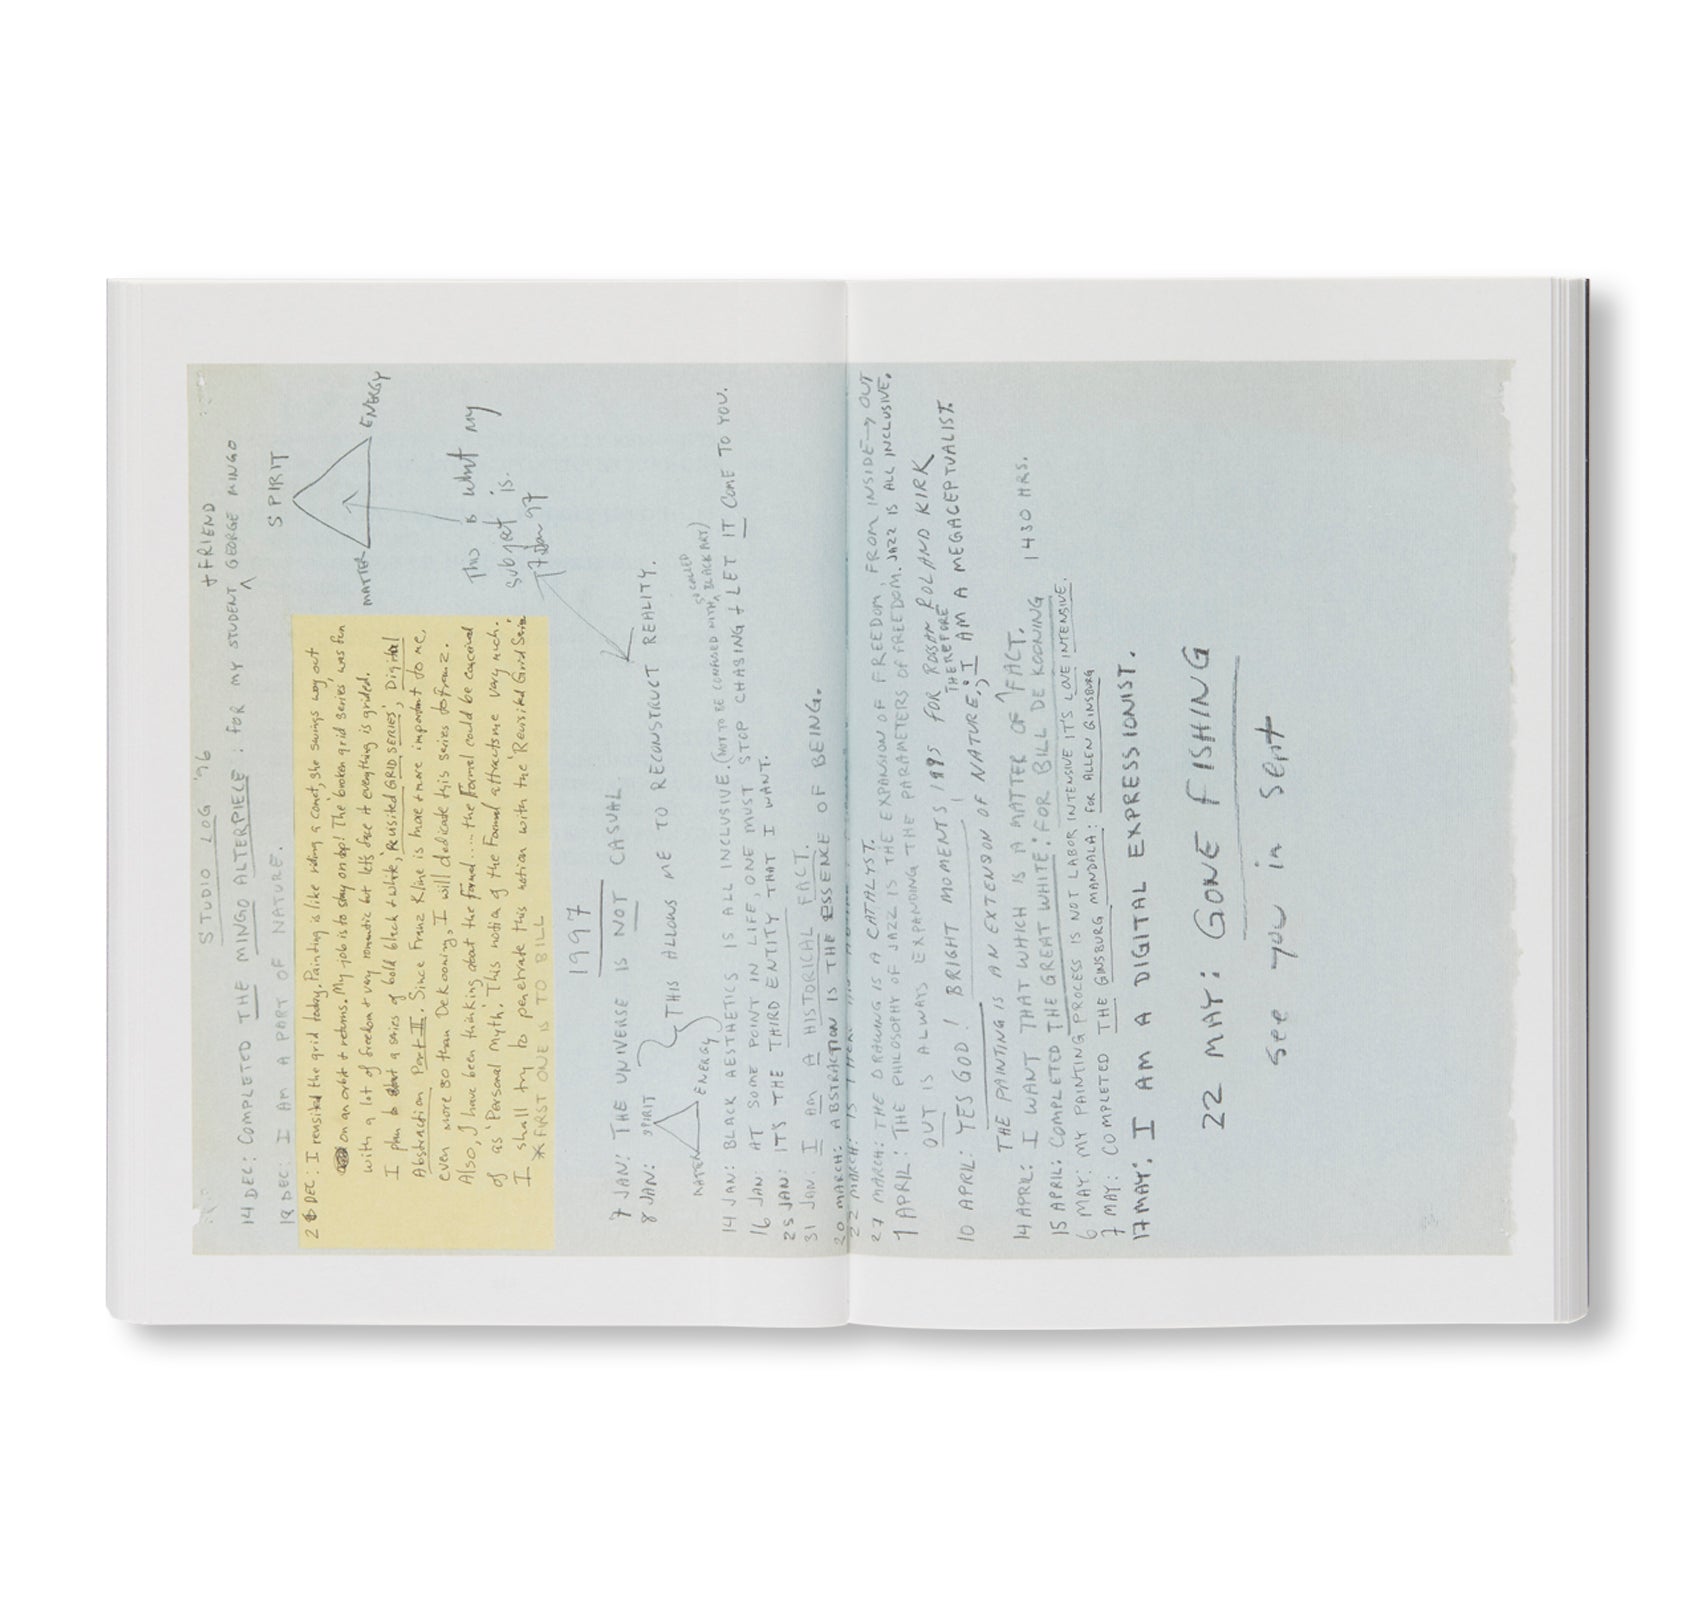 STUDIO LOG '96
+ FRIEND
14 DEC: COMPLETED THE MINGO ALTERPIECE: FOR MY STUDENT ^ GEORGE MINGO
18 DEC: I AM A PART OF NATURE.
SPIRIT
MATTER
ENERGY
This is what my
subject is.
7 Jan 97
26 DEC: I revisited the grid today. Painting is like riding a comet, she swings way out
on an orbit + returns. My job is to stay on top! The 'broken grid series' was fun
with a lot of freedom + very romantic but let's face it everything is grided.
I plan to start a series of bold black + white, 'Revisited GRID SERIES', Digital
Abstraction Part II. Since Franz Kline is more + more important to me,
even more so than DeKooning, I will dedicate this series to Franz.
Also, I have been thinking about the formal .... the formal could be conceived
of as 'Personal Myth'. This notion of the Formal attracts me very much.
I shall try to penetrate this notion with the 'Revisited Grid Series'
* FIRST ONE IS TO BILL
1997
7 JAN: THE UNIVERSE IS NOT CASUAL.
8 JAN: SPIRIT
MATTER ENERGY
THIS ALLOWS ME TO RECONSTRUCT REALITY.
SO CALLED
14 JAN: BLACK AESTHETICS IS ALL INCLUSIVE. (NOT TO BE CONFUSED WITH ^ BLACK ART)
16 JAN: AT SOME POINT IN LIFE, ONE MUST STOP CHASING + LET IT COME TO YOU.
25 JAN: IT'S THE THIRD ENTITY THAT I WANT.
31 JAN. I AM A HISTORICAL FACT.
20 MARCH: ABSTRACTION IS THE ESSENCE OF BEING.
22 MARCH:
27 MARCH: THE DRAWING IS A CATALYST.
1 APRIL: THE PHILOSOPHY OF JAZZ IS THE EXPANSION OF FREEDOM, FROM INSIDE → OUT
OUT IS ALWAYS EXPANDING THE PARAMETERS OF FREEDOM. JAZZ IS ALL INCLUSIVE.
10 APRIL: YES GOD! BRIGHT MOMENTS 1995 FOR ROLAND KIRK
THEREFORE
THE PAINTING IS AN EXTENSION OF NATURE; I AM A MEGACEPTUALIST.
14 APRIL: I WANT THAT WHICH IS A MATTER OF ^ FACT.
15 APRIL: COMPLETED THE GREAT WHITE: FOR BILL DE KOONING 1430 HRS.
6 MAY: MY PAINTING PROCESS IS NOT LABOR INTENSIVE IT'S LOVE INTENSIVE.
7 MAY: COMPLETED THE GINSBURG MANDALA: FOR ALLEN GINSBURG
17 MAY: I AM A DIGITAL EXPRESSIONIST.
22 MAY: GONE FISHING
see you in Sept